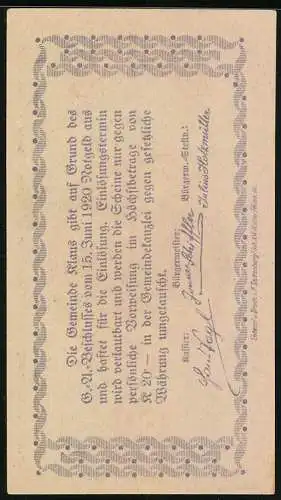 Die Gemeinde Klaus gibt auf Grund des
G.-A.-Beschlusses vom 15. Juni 1920 Notgeld aus
und haftet für die Einlösung. Einlösungstermin
wird verlautbart und werden die Scheine nur gegen
persönliche Vorweisung im Höchstbetrage von
K 20 — in der Gemeindekanzlei gegen gesetzliche
Währung umgetauscht.
Bürgermeister:
Kassier: Bürgerm.-Stellv.: